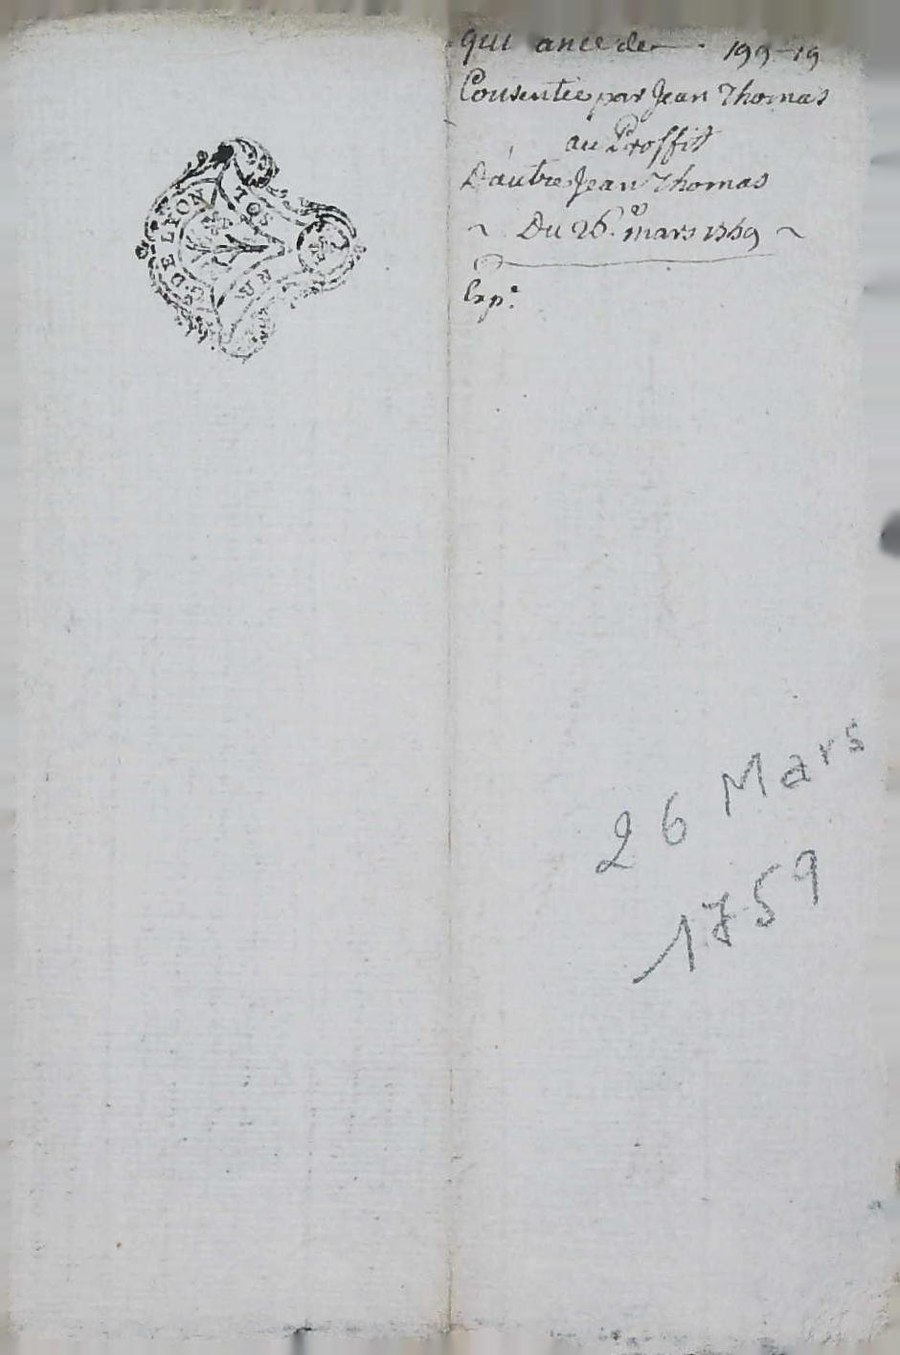 DE LYON
SOLS
quittance de 199-19
Consentie par Jean Thomas
au Proffit
D'autre Jean Thomas
~ Du 26.e mars 1759 ~
Exp.e
26 Mars
1759